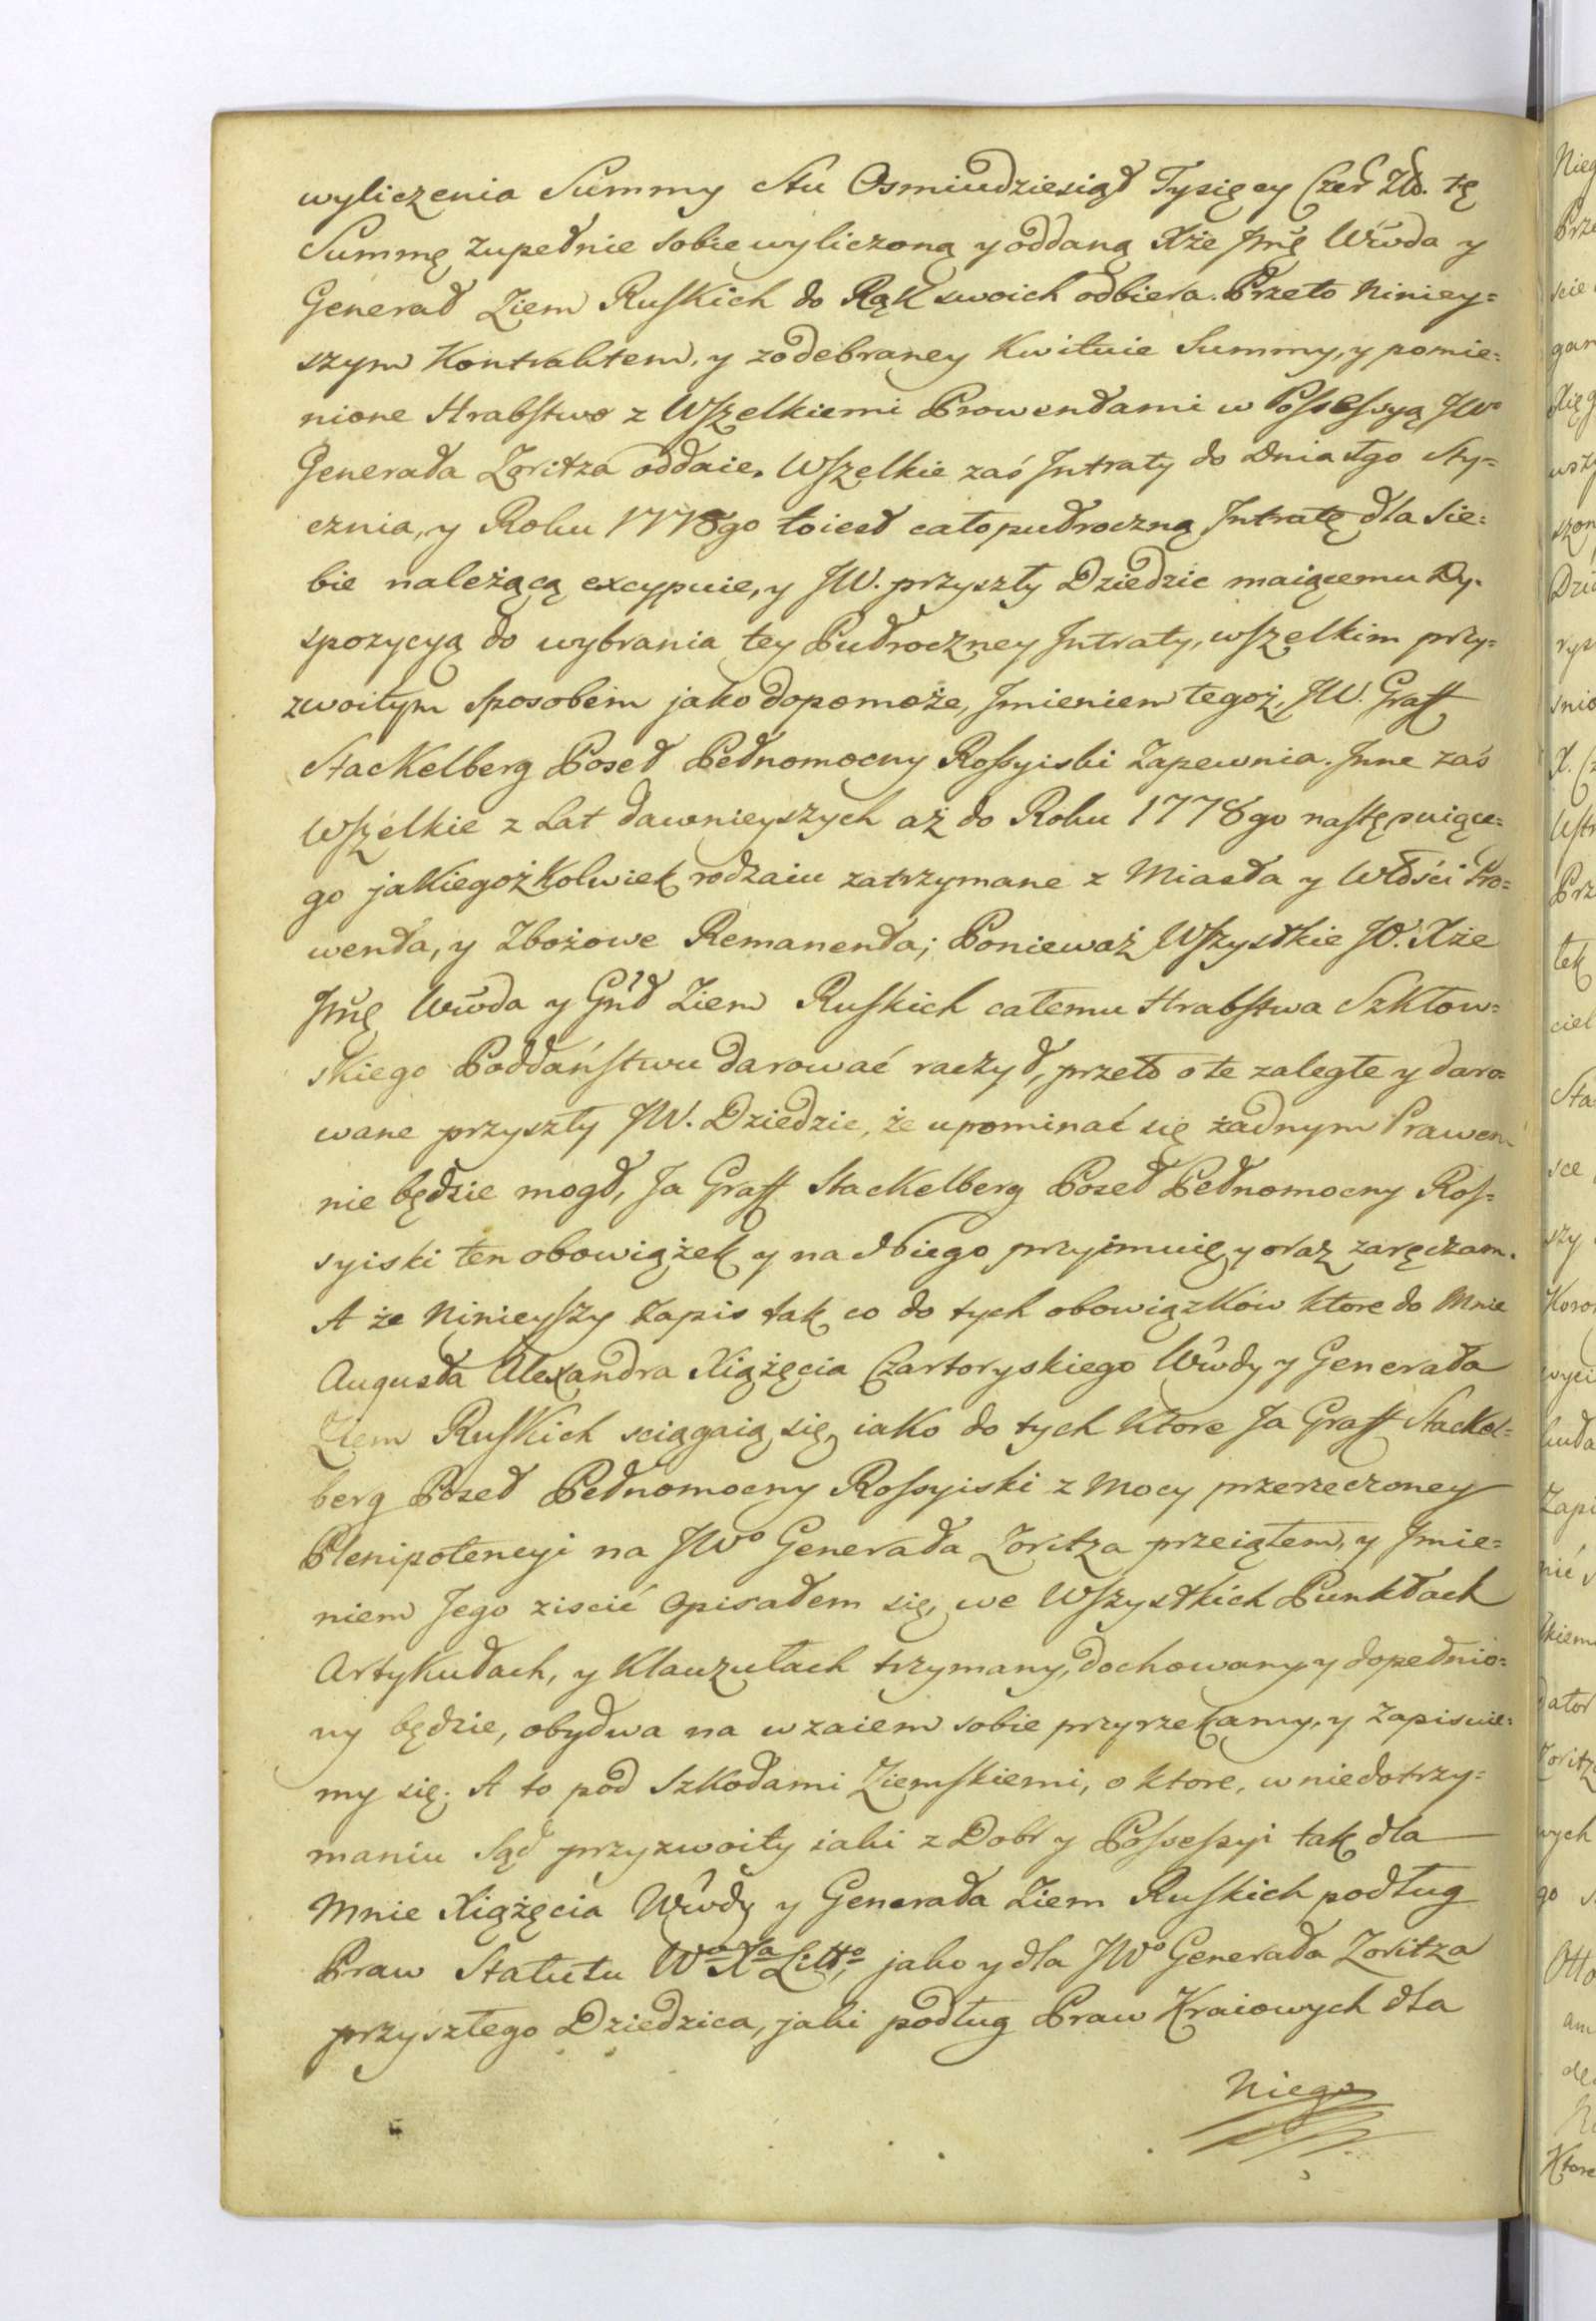 wyliczenia Summy Stu Osmiudziesiąt Tysięcy Czer Złł. tę
Summę zupełnie sobie wyliczoną y oddaną Xże Jmć Wwoda y
Generał Ziem Ruskich do Rąk swoich odbiera. Przeto Niniey=
szym Kontraktem, y zodebraney Kwituie Summy, y pomie=
nione Hrabstwo z Wszelkiemi Prowentami w Possessyą JWo
Generała Zoritza oddaie. Wszelkie zaś Jntraty do Dnia 1go Sty=
cznia, y Roku 1778go to iest całopułroczną Jntratę dla Sie=
bie należącą excypuie, y JW. przyszły Dziedzic maiącemu Dy=
spozycyą do wybrania tey Pułroczney Jntraty, wszelkim przy=
zwoitym sposobem jako dopomoże, Jmieniem tegoż, JW. Graff
Stackelberg Poseł Pełnomocny Rossyiski Zapewnia. Jnne zaś
Wszelkie z Lat dawnieyszych aż do Roku 1778go następuiące=
go jakiegożkolwiek rodzaiu zatrzymane z Miasta y Włości Pro=
wenta, y Zbożowe Remanenta; Ponieważ Wszystkie JO. Xże
Jmć Wwoda y Gnł Ziem Ruskich całemu Hrabstwa Szkłow=
skiego Poddaństwu darować raczył, przeto o te zaległe y daro=
wane przyszły JW. Dziedzic, że upominać się żadnym Prawem
nie będzie mogł, Ja Graff Stackelberg Poseł Pełnomocny Ros=
syiski ten obowiązek y na Niego przyimuię y oraz zaręczam.
A że Ninieyszy Zapis tak co do tych obowiązków ktore do Mnie
Augusta Alexandra Xiążęcia Czartoryskiego Wwody y Generała
Ziem Ruskich sciągaią się, iako do tych ktore Ja Graff Stackel=
berg Poseł Pełnomocny Rossyiski z Mocy przerzeczoney
Plenipotencyi na JWo Generała Zoritza przeiąłem, y Jmie=
niem Jego ziscić opisałem się, we Wszystkich Punktach
Artykułach, y Klauzułach trzymany, dochowany y dopełnio=
ny będzie, obydwa na wzaiem sobie przyrzekamy, y Zapisuie=
my się. A to pod Szkodami Ziemskiemi, o ktore, w niedotrzy=
maniu Sąd przyzwoity iaki z Dobr y Possessyi tak dla
Mnie Xiążęcia Wwody y Generała Ziem Ruskich podług
Praw Statutu Wo Xa Litto, jako y dla JWo Generała Zoritza
przyszłego Dziedzica, jaki podług Praw Kraiowych dla
Niego